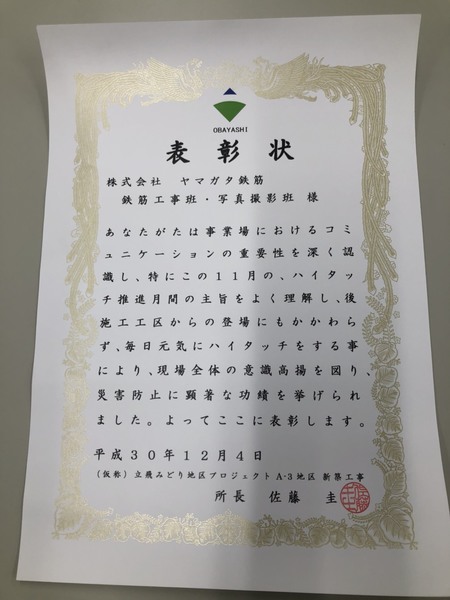 OBAYASHI
表彰状
株式会社 ヤマガタ鉄筋
鉄筋工事班・写真撮影班 様
あなたがたは事業場におけるコミ
ュニケーションの重要性を深く認
識し、特にこの11月の、ハイタッ
チ推進月間の主旨をよく理解し、後
施工工区からの登場にもかかわら
ず、毎日元気にハイタッチをする事
により、現場全体の意識高揚を図り、
災害防止に顕著な功績を挙げられ
ました。よってここに表彰します。
平成30年12月4日
(仮称)立飛みどり地区プロジェクト A-3地区 新築工事
所長 佐藤 圭